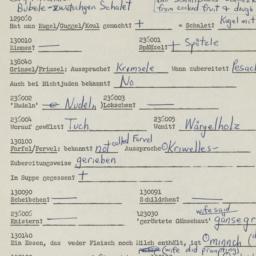 Bubele-zwetschgen Schalet
from cooked fruit & dough
129060
Hat man Kugel/Guggel/Koul gemacht? + = Schalet: Kugel mit
130010 23'001
Zimmes? — Spätzle? + Spätzle
130040
Grimsel/Frimsel: Aussprache? Kremsele Wann zubereitet: Pesach
Auch bei Nichtjuden bekannt? No
23'002 23'003
"Nudeln" Nudeln Lokschen? —
23'004 23'005
Worauf gewälzt: Tuch Womit: Wärgelholz
130100 not called Farvel
Farfel/Fervel: bekannt? Aussprache Kriwelles-
Zubereitungsweise gerieben
In Suppe gegessen? +
130090 130091
Scheibchen? — Schildchen? —
23'006 123030 wife said
Knistern? — "gerörtete Gänsehaut" gänsegr
130140
Ein Essen, das weder Fleisch noch Milch enthält, ist minnch
(wife did